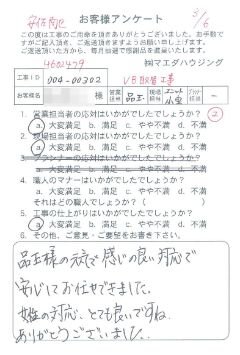 安佐南区
3/6
お客様アンケート
この度は工事のご用命を頂きありがとうございました。お手数で
すがご記入頂き、ご返送頂きますようお願い申し上げます。
ご返送頂いた方から、毎月抽選で感謝品を進呈いたします。
4602459
㈱マエダハウジング
工事ID 004-00302 UB取替工事
お客様名 様 営業担当 品王 現場担当 小室 プランナー担当 ー
②
1. 営業担当者の応対はいかがでしたでしょうか?
a. 大変満足 b. 満足 c. やや不満 d. 不満
2. 現場担当者の応対はいかがでしたでしょうか?
a. 大変満足 b. 満足 c. やや不満 d. 不満
3. プランナーの応対はいかがでしたでしょうか?
a. 大変満足 b. 満足 c. やや不満 d. 不満
4. 職人のマナーはいかがでしたでしょうか?
a. 大変満足 b. 満足 c. やや不満 d. 不満
それはどの職人でしょうか?( )
5. 工事の仕上がりはいかがでしたでしょうか?
a. 大変満足 b. 満足 c. やや不満 d. 不満
6. その他、ご意見・ご要望をお書き下さい。
品王様の元気で感じの良い対応で
安心してお任せできました。
女性の対応、とても良いですね。
ありがとうございました。